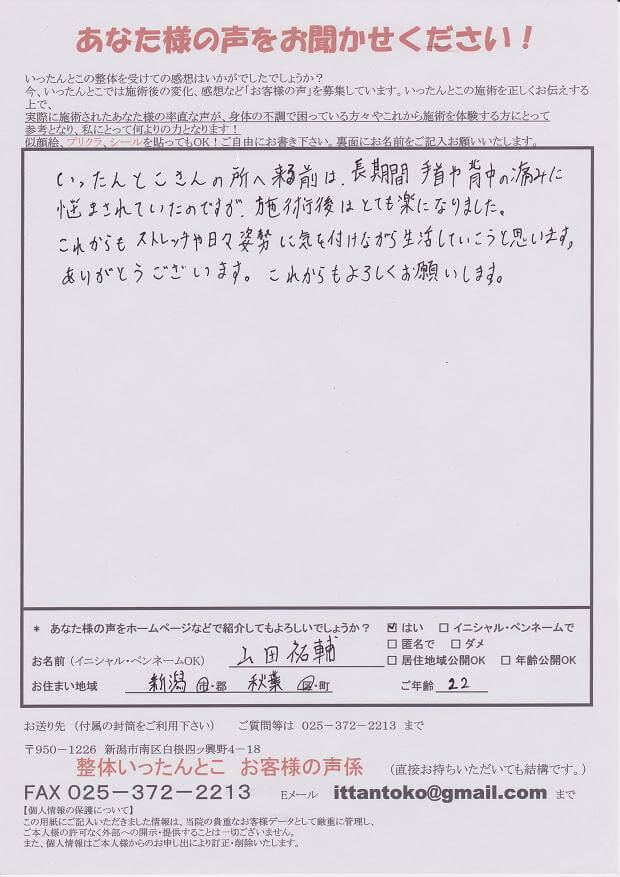 あなた様の声をお聞かせください！
いったんとこの整体を受けての感想はいかがでしたでしょうか？
今、いったんとこでは施術後の変化、感想など「お客様の声」を募集しています。いったんとこの施術を正しくお伝えする
上で、
実際に施術されたあなた様の率直な声が、身体の不調で困っている方々やこれから施術を体験する方にとって
参考となり、私にとって何よりの力となります！
似顔絵、プリクラ、シールを貼ってもOK！ご自由にお書き下さい。裏面にお名前をご記入お願いいたします。
いったんとこさんの所へ来る前は、長期間 手首や背中の痛みに
悩まされていたのですが、施術後はとても楽になりました。
これからも ストレッチや日々姿勢に気を付けながら生活していこうと思います。
ありがとうございます。これからもよろしくお願いします。
* あなた様の声をホームページなどで紹介してもよろしいでしょうか？ ☑ はい □ イニシャル・ペンネームで
□ 匿名で □ ダメ
お名前（イニシャル・ペンネームOK） 山田祐輔 □ 居住地域公開OK □ 年齢公開OK
お住まい地域 新潟 市・郡 秋葉 区・町 ご年齢 22
お送り先 （付属の封筒をご利用下さい） ご質問等は 025－372－2213 まで
〒950－1226 新潟市南区白根四ッ興野4－18
整体いったんとこ お客様の声係 （直接お持ちいただいても結構です。）
FAX 025－372－2213 Eメール ittantoko@gmail.com まで
【個人情報の保護について】
この用紙にご記入いただきました情報は、当院の貴重なお客様データとして厳重に管理し、
ご本人様の許可なく外部への開示・提供することは一切ございません。
また、個人情報はご本人様からのお申し出により訂正・削除いたします。